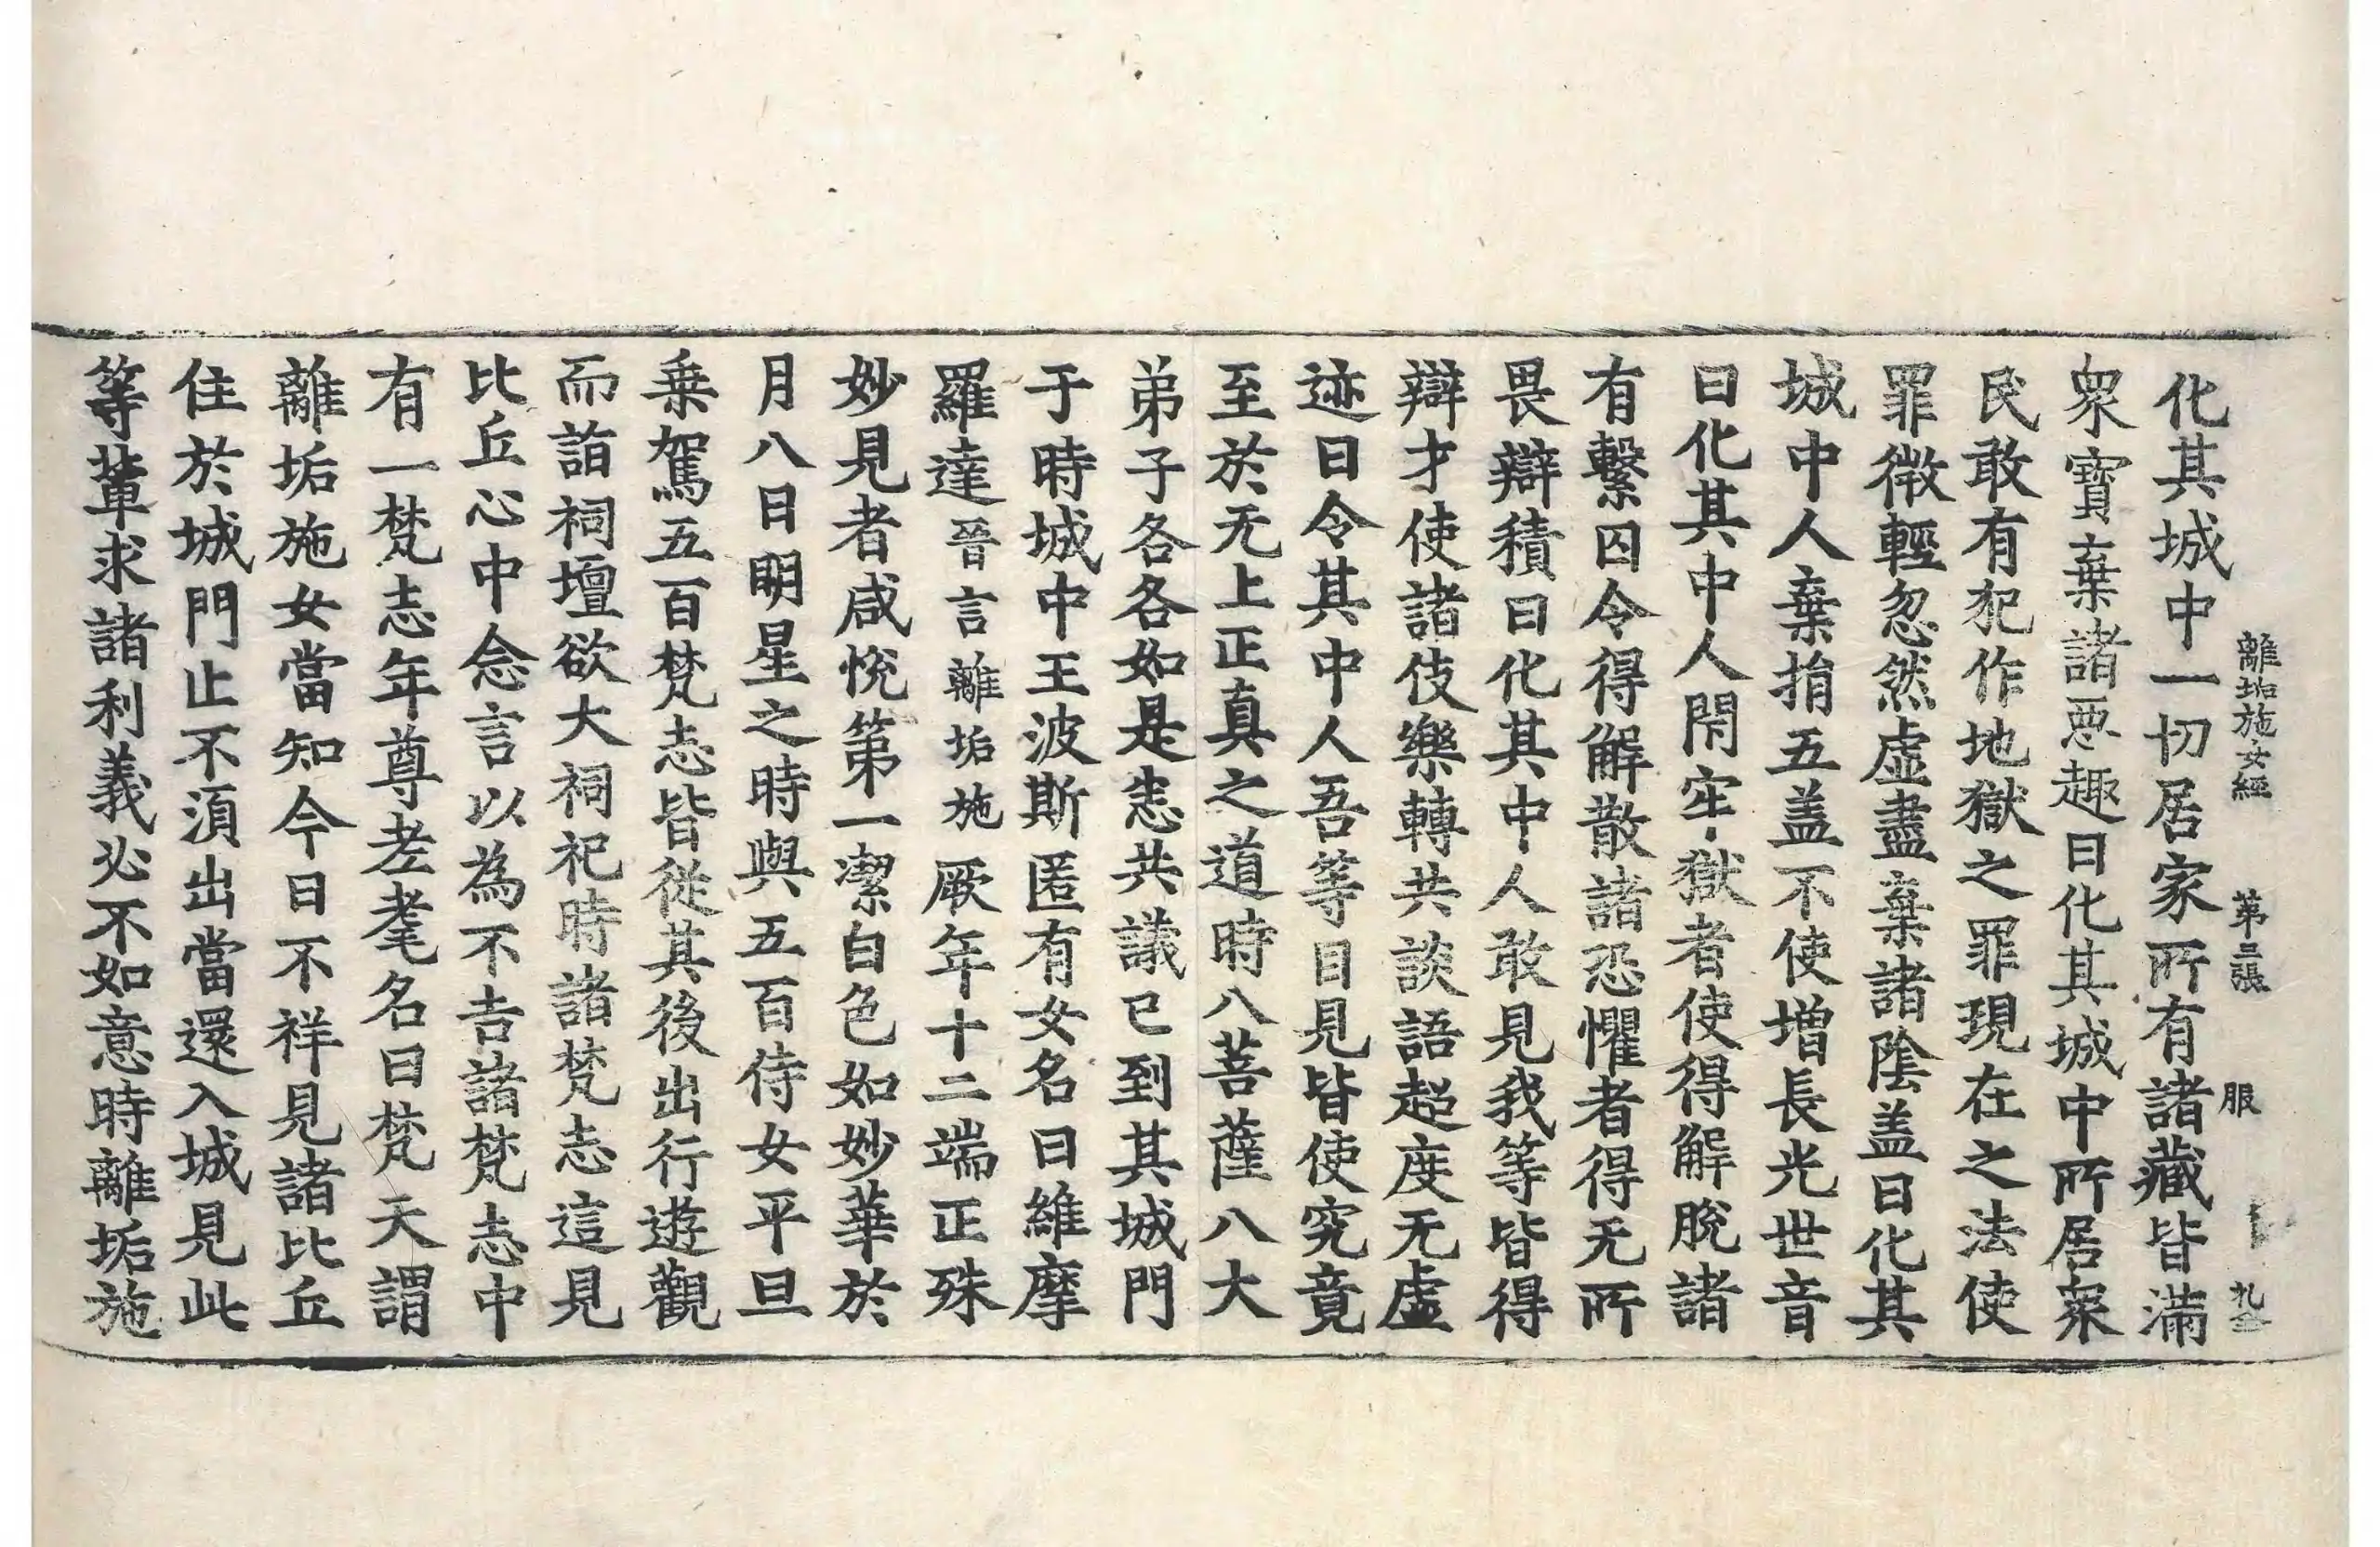 離垢施女經 第三張 服
化其城中一切居家所有諸藏皆滿
衆寶棄諸惡趣曰化其城中所居衆
民敢有犯作地獄之罪現在之法使
罪微輕忽然虛盡棄諸陰盖曰化其
城中人棄捐五盖不使增長光世音
曰化其中人閇牢獄者使得解脫諸
有繫囚令得解散諸恐懼者得无所
畏辯積曰化其中人敢見我等皆得
辯才使諸伎樂轉共談語超度无虛
迹曰令其中人吾等目見皆使究竟
至於无上正真之道時八菩薩八大
弟子各各如是恚共議已到其城門
于時城中王波斯匿有女名曰維摩
羅達晉言離垢施厥年十二端正殊
妙見者咸悅第一潔白色如妙華於
月八日明星之時與五百侍女平旦
乗駕五百梵志皆從其後出行遊觀
而詣祠壇欲大祠祀時諸梵志這見
比丘心中念言以為不吉諸梵志中
有一梵志年尊耆耄名曰梵天謂
離垢施女當知今日不祥見諸比丘
住於城門止不湏出當還入城見此
等輩求諸利義必不如意時離垢施